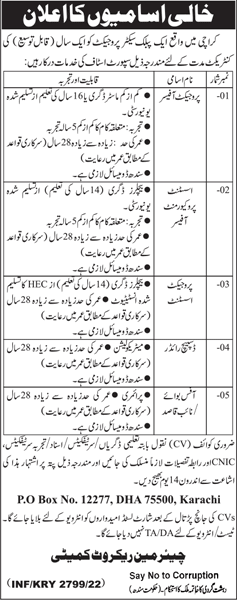 خالی اسامیوں کا اعلان
کراچی میں واقع ایک پبلک سیکٹر پروجیکٹ کو ایک سال (قابل توسیع) کی
کنٹریکٹ مدت کے لئے مندرجہ ذیل سپورٹ اسٹاف کی خدمات درکار ہیں:
نمبر شمار نام اسامی قابلیت اور تجربہ
01- پروجیکٹ آفیسر
کم از کم ماسٹر ڈگری یا 16 سال کی تعلیم) از تسلیم شدہ
یونیورسٹی۔
تجربہ: متعلقہ کام کا کم از کم 5 سالہ تجربہ
عمر کی حد: زیادہ سے زیادہ 28 سال (سرکاری قواعد
کے مطابق عمر میں رعایت)
سندھ ڈومیسائل لازمی ہے۔
02- اسسٹنٹ
پروکیورمنٹ
آفیسر
بیچلرز ڈگری (14 سال کی تعلیم) از تسلیم شدہ
یونیورسٹی۔
تجربہ: متعلقہ کام کا کم از کم 5 سالہ تجربہ
عمر کی حد زیادہ سے زیادہ 28 سال (سرکاری قواعد
کے مطابق عمر میں رعایت)
سندھ ڈومیسائل لازمی ہے۔
03- پروجیکٹ
اسسٹنٹ
بیچلرز ڈگری (14 سال کی تعلیم) از HEC کا تسلیم
شدہ انسٹیٹیوٹ عمر کی حد زیادہ سے زیادہ 28 سال
(سرکاری قواعد کے مطابق عمر میں رعایت)
سندھ ڈومیسائل لازمی ہے۔
04- ڈسپیچ رائڈر
میٹریکولیشن عمر کی حد زیادہ سے زیادہ 28 سال
(سرکاری قواعد کے مطابق عمر میں رعایت)
سندھ ڈومیسائل لازمی ہے۔
05- آفس بوائے/
نائب قاصد
پرائمری عمر کی حد زیادہ سے زیادہ 28 سال
(سرکاری قواعد کے مطابق عمر میں رعایت)
سندھ ڈومیسائل لازمی ہے۔
ضروری کوائف (CV) نقول بابتہ تعلیمی ڈگریاں/سرٹیفکیٹس/اسناد/تجربہ سرٹیفکیٹس،
CNIC اور رابطہ تفصیلات لازماً منسلک کی جائیں اور مندرجہ ذیل پتہ پر اشتہار ہذا کی
اشاعت سے اندرون 14 یوم بھیج دیں۔
P.O Box No. 12277, DHA 75500, Karachi
CVs کی جانچ پڑتال کے بعد شارٹ لسٹڈ امیدواروں کو انٹرویو کے لئے بلایا جائے گا۔
ٹیسٹ/انٹرویو کے لئے TA/DA نہیں دیا جائے گا۔
چیئرمین ریکروٹ کمیٹی
Say No to Corruption
(INF/KRY 2799/22)